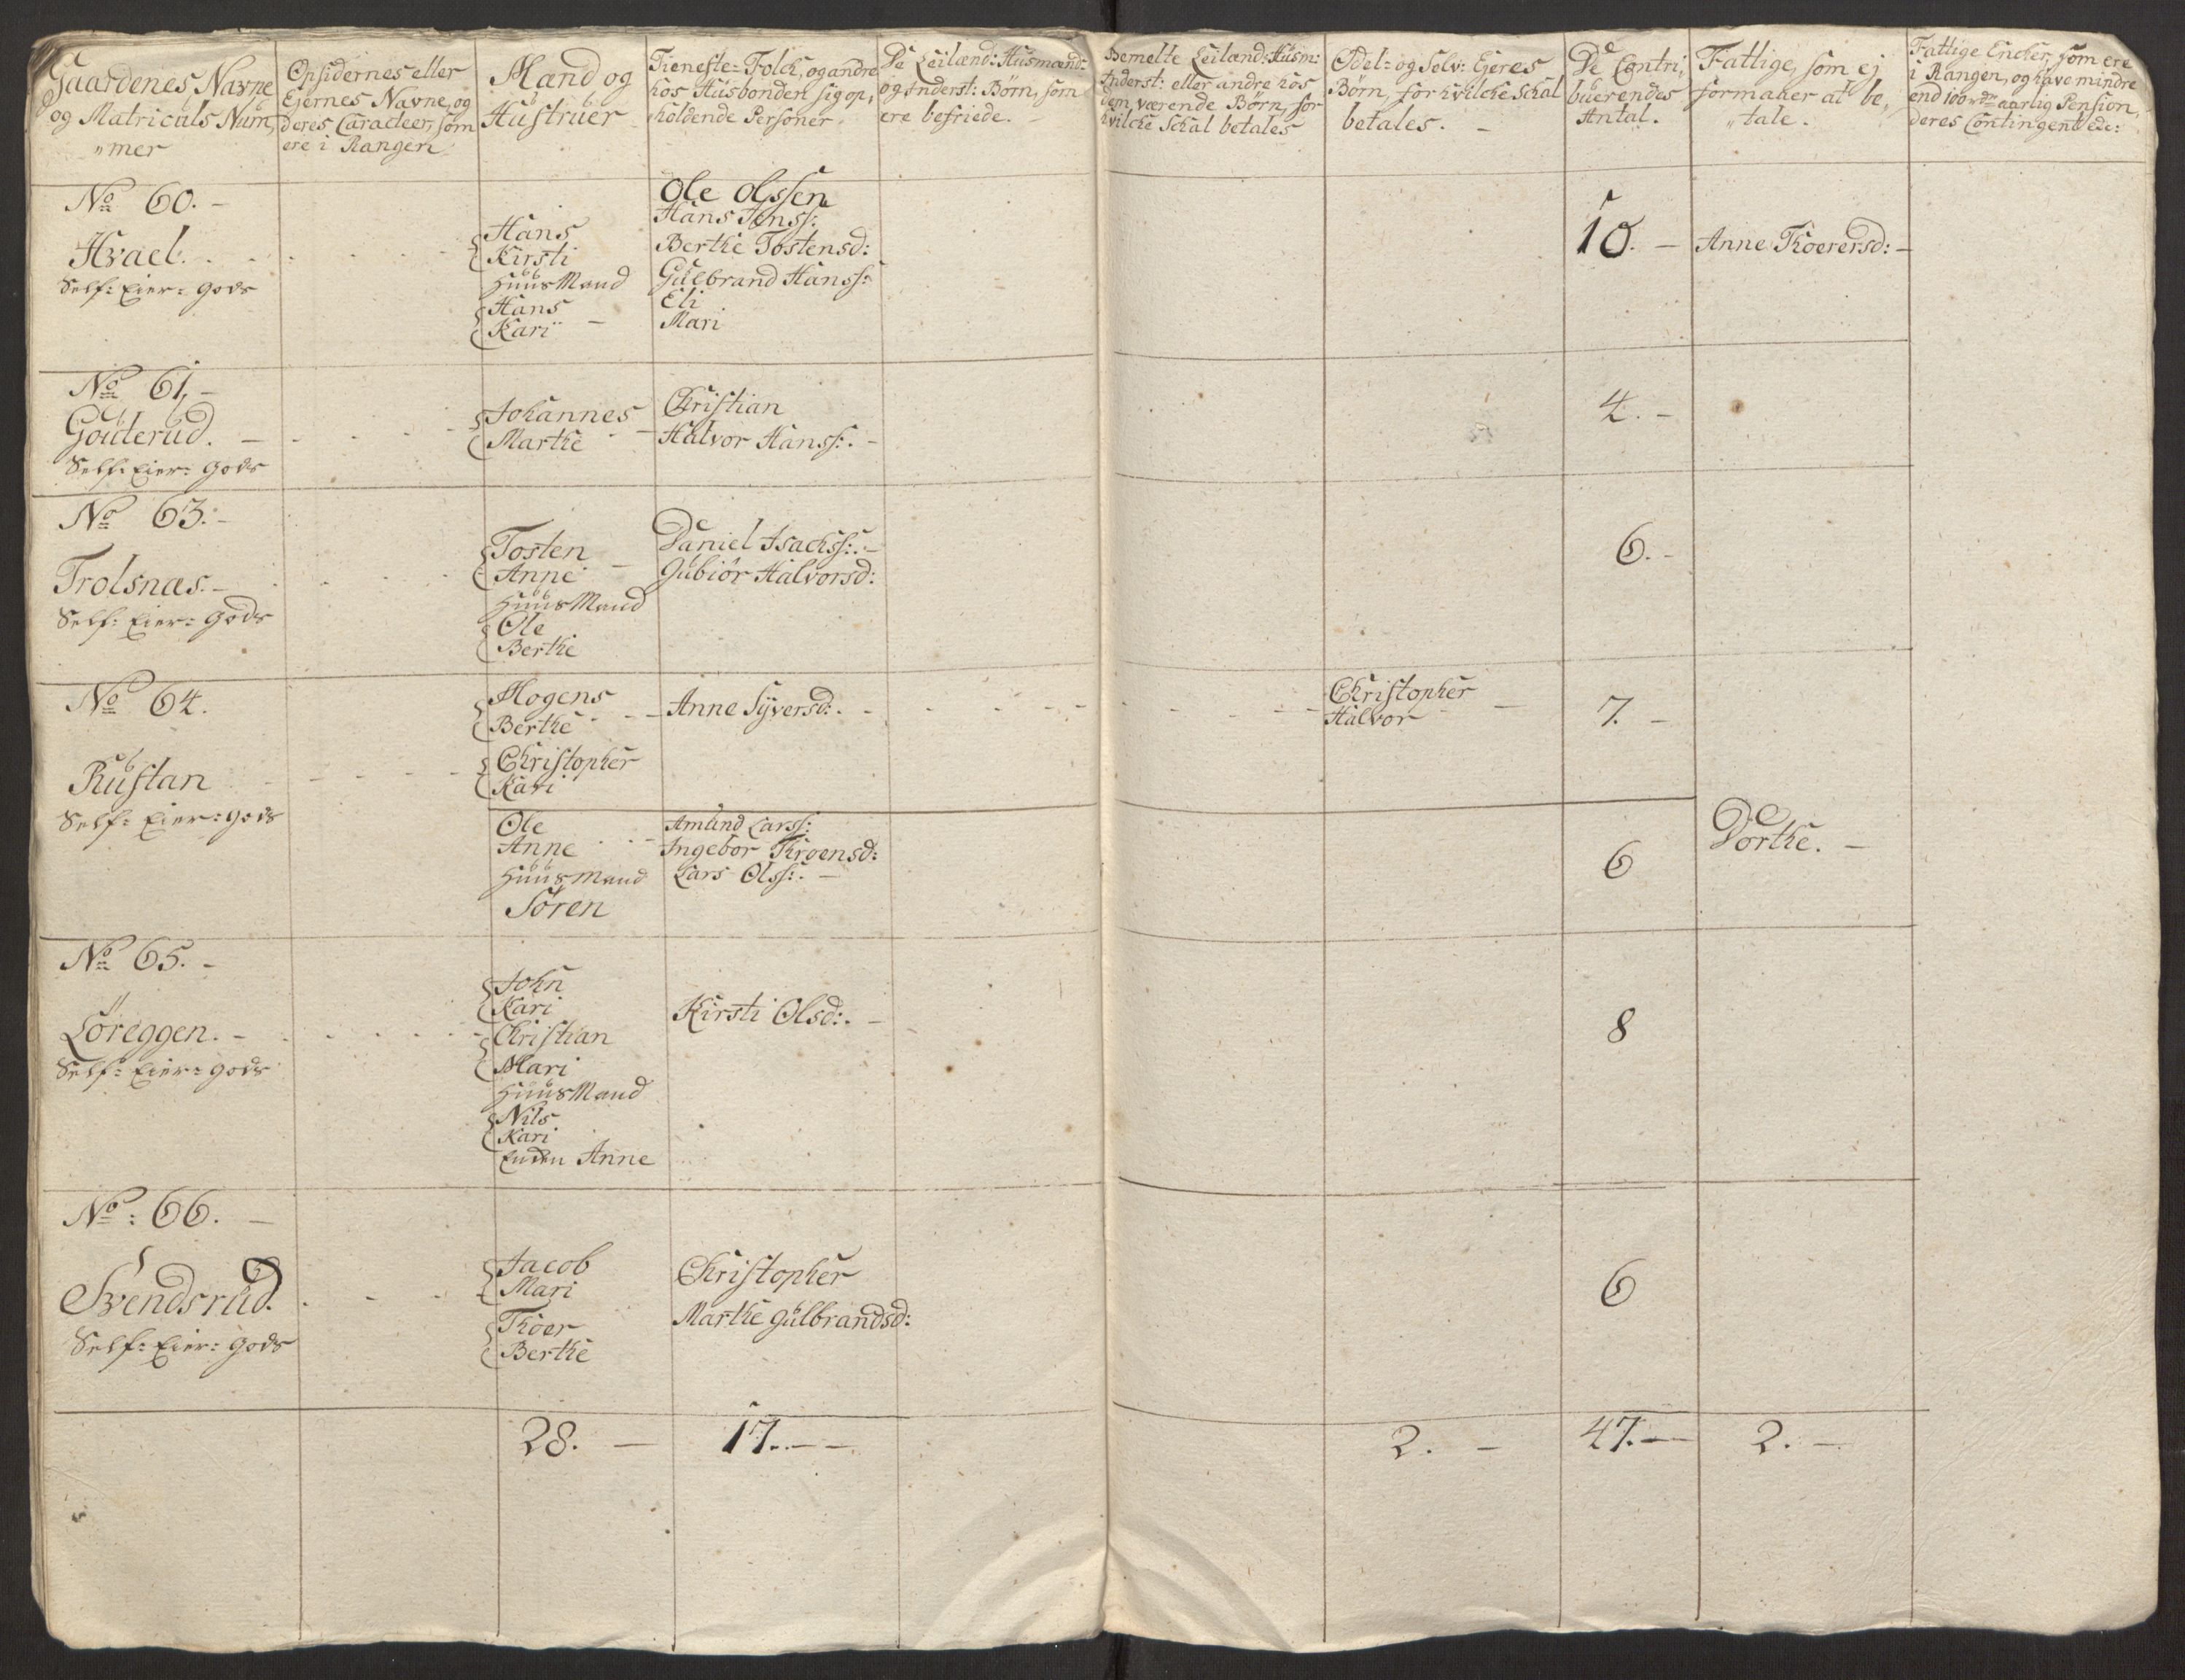 Gaardenes Navne
og Matriculs Num,
"mer
Opsidernes eller
Ejernes Navne, og
deres Caracteer, som
ere i Rangen
Mænd og
Hustruer
Tieneste=Folck, og andre
hos Husbonden sig op,
holdende Personer.
De Leilænd: Husmænd:
og Inderst: Börn, som
ere befriede. -
Bemelte Leilænd: Husm:
Inderst: eller andre hos
dem værende Börn, for
hvilche Schal betales
Odel= og Selv: Ejeres
Börn, for hvilche Schal
betales. -
De Contri,
buerendes
Antal.
Fattige, som ej
formaaer at be,
"tale.
Fattige Encker, som ere
i Rangen, og have mindre
end 100 rdr aarlig Pension,
deres Contingent ere:
No 60. -
Hvael.
Self= Eier= Gods
Hans
Kirsti
HuusMand
Hans
Kari -
Ole Olssen
Hans Jenss:
Berthe Tostensd:
Gulbrand Hanss:
Eli
Mari
10. -
Anne Thoerersd: -
No 61, -
Gouterud. -
Self: Eier= Gods
Johannes
Marthe -
Christian
Halvor Hanss:. -
4. -
No 63. -
Trolsnæs. -
Self: Eier= Gods
Tosten
Anne -
HuusMand
Ole
Berthe
Daniel Isachss:. -
Gubiör Halvorsd:
6. -
No 64.
Rustan
Self= Eier= Gods
Mogens
Berthe -
Christopher
Kari
Anne Syversd:. -
Christopher
Halvor -
7. -
Ole
Anne
HuusMand
Sören
Amund Larss:
Ingebor Throensd:
Lars Olss:. -
6
Dorthe. -
No 65. -
Löreggen. -
Self= Eier= Gods
John
Kari
Christian
Mari
HuusMand
Nils
Kari
Enken Anne
Kirsti Olsd:. -
8
No: 66. -
Svendsrud.
Self= Eier= Gods
Jacob
Mari
Thoer
Berthe
Christopher
Marthe Gulbrandsd:
6
28. -
17. - -
2. -
47. -
2. -